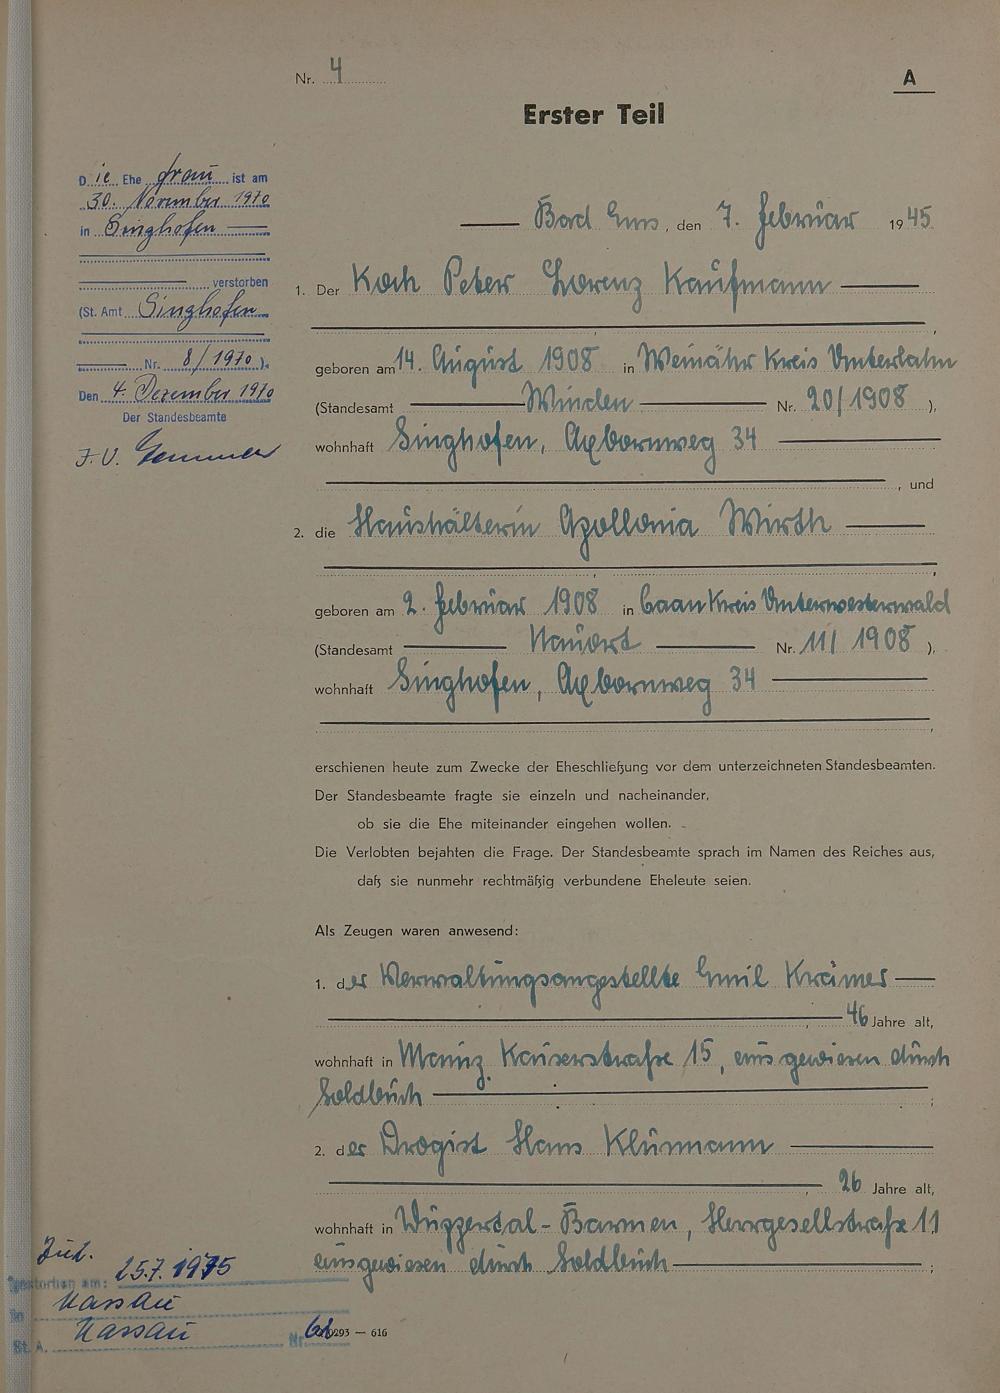 Nr. 4
A
Erster Teil
Die Ehefrau ist am
30. November 1970
in Singhofen
verstorben
(St. Amt Singhofen
Nr. 8/1970).
Den 4. Dezember 1970
Der Standesbeamte
J.V.
Bad Ems, den 7. Februar 1945.
1. Der Koch Peter Lorenz Kaufmann,
geboren am 14. August 1908 in Weinähr Kreis Unterlahn
(Standesamt Winden Nr. 20/1908),
wohnhaft Singhofen, Axbornweg 34
, und
2. die Haushälterin Apollonia Wirth,
geboren am 2. Februar 1908 in Caan Kreis Unterwesterwald
(Standesamt Nauort Nr. 11/1908),
wohnhaft Singhofen, Axbornweg 34,
erschienen heute zum Zwecke der Eheschließung vor dem unterzeichneten Standesbeamten.
Der Standesbeamte fragte sie einzeln und nacheinander,
ob sie die Ehe miteinander eingehen wollen.
Die Verlobten bejahten die Frage. Der Standesbeamte sprach im Namen des Reiches aus,
daß sie nunmehr rechtmäßig verbundene Eheleute seien.
Als Zeugen waren anwesend:
1. der Verwaltungsangestellte Emil Krämer
, 46 Jahre alt,
wohnhaft in Mainz, Kaiserstraße 15, ausgewiesen durch
Soldbuch;
2. der Drogist Hans Klümann
, 26 Jahre alt,
wohnhaft in Wuppertal-Barmen, Herrgesellstraße 11
ausgewiesen durch Soldbuch;
gestorben am: 25.7.1975
in Nassau
St. A. Nassau Nr.
0293 — 616